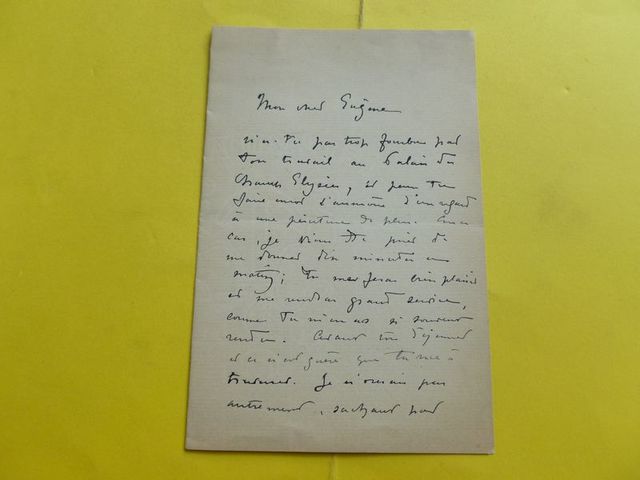 Mon cher Eugène
n'es-tu pas trop fourbu par
ton travail au Palais des
Champs Elysées, et peux-tu
faire encor l'aumône d'un regard
à une peinture de plus. En ce
cas, je viens te prier de
me donner dix minutes un
matin; tu me feras bien plaisir
et me rendras grand service,
comme tu m'en as si souvent
rendu. Avant ton déjeuner
et ce n'est guère que tu me
traverser. Je n'oserais pas
autrement, sachant par